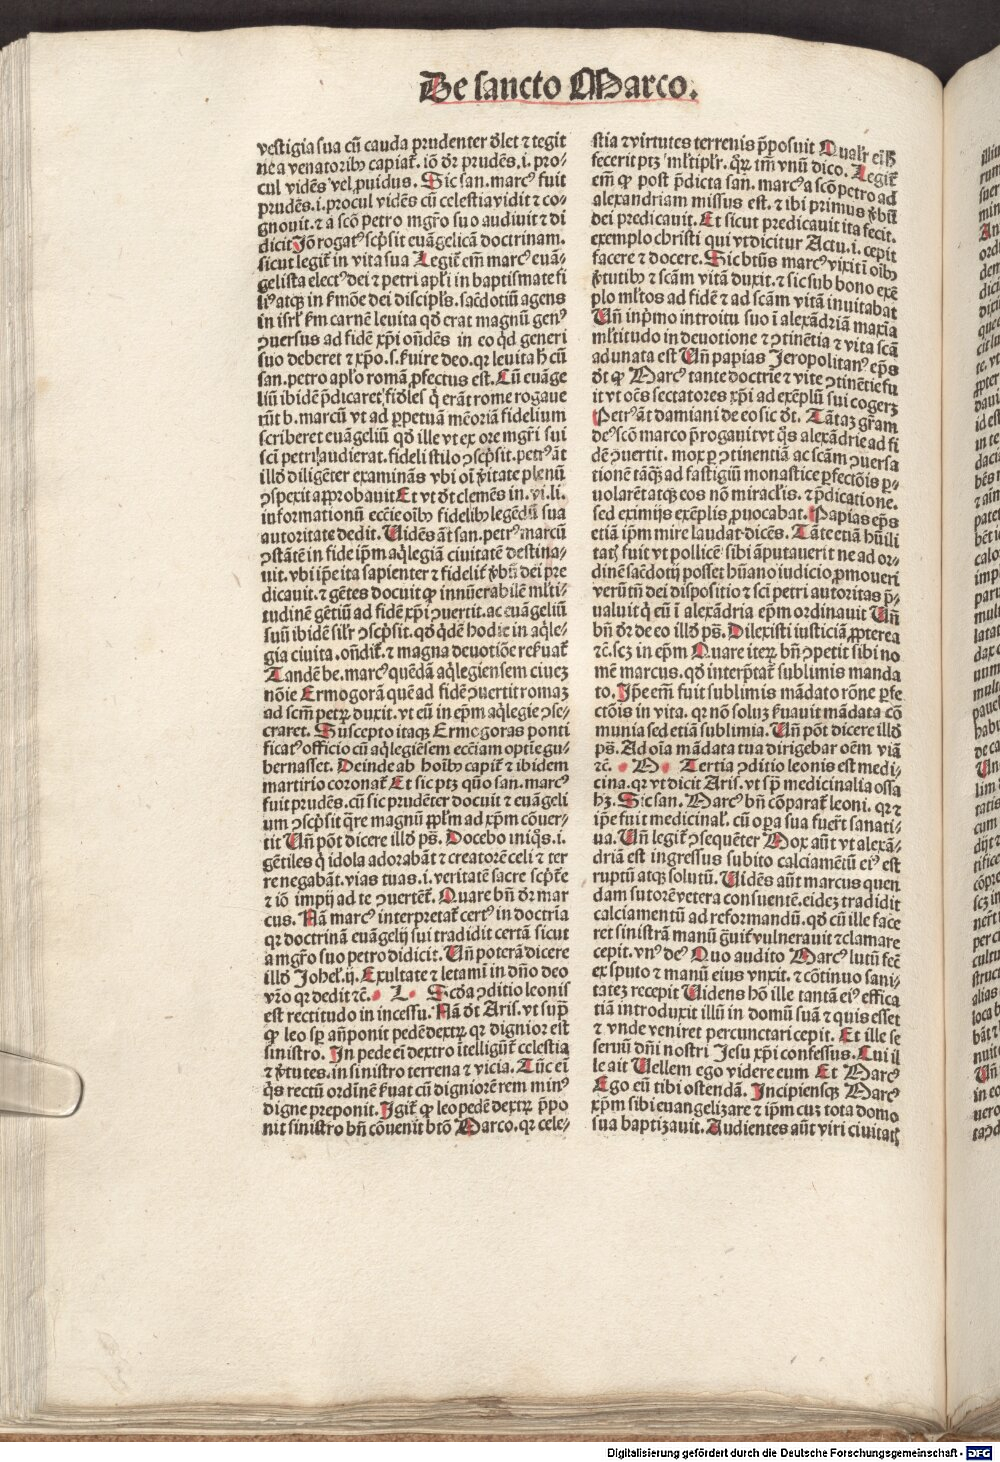 De sancto Marco.
vestigia sua cū cauda prudenter dꝫlet ⁊ tegit
ne a venatoribꝰ capiat᷑. iō dr̄ prudēs. i. pro-
cul vidēs vel ꝓuidus. Sic san. marcꝰ fuit
prudēs. i. procul vidēs cū celestia vidit ⁊ co-
gnouit. ⁊ a scō petro mgr̄o suo audiuit ⁊ di
dicit Iō rogatꝰ scp̄sit euāgelicā doctrinam.
sicut legit᷑ in vita sua Legit᷑ em̄ marcꝰ euā-
gelista electꝰ dei ⁊ petri apl̄i in baptismate fi
liꝰ atqꝫ in s̄mōe dei discipl̄s. sac̄dotiū agens
in isrl̄ s̄m carnē leuita qd̄ erat magnū genꝰ
ꝯuersus ad fidē xp̄i on̄dēs in eo qd̄ generi
suo deberet ⁊ xp̄o. s. s̄uire deo. qr leuita h̄ cū
san. petro apl̄o romā ꝓfectus est. Cū euāge
liū ibidē p̄dicaret᷑ fidēles q̄ erāt rome rogaue
rūt b. marcū vt ad ꝑpetuā mēoriā fidelium
scriberet euāgeliū qd̄ ille vt ex ore mgr̄i sui
scī petri audierat. fideli stilo ꝯscp̄sit. petrꝰ āt
illd̄ diligēter examinās vbi oī v̄itate plenū
ꝯspexit approbauit Et vt dt̄ clemēs in. vi. li.
informationū eccīe oībꝰ fidelibꝰ legēdū sua
autoritate dedit. Uidēs āt san. petrꝰ marcū
ꝯstātē in fide ip̄m aq̄legiā ciuitatē destina-
uit. vbi ip̄e ita sapienter ⁊ fidelit᷑ v̄bū dei pre
dicauit. ⁊ gētes docuit ꝙ innūerabilē ml̄ti-
tudinē gētiū ad fidē xp̄i ꝯuertit. ac euāgeliū
suū ibidē sil̄r ꝯscp̄sit. qd̄ q̄dē hodie in aq̄le-
gia ciuita. on̄dit᷑. ⁊ magna deuotiōe res̄uat᷑
Tandē be. marcꝰ quēdā aq̄legiensem ciueꝫ
nōie Ermogorā quē ad fidē ꝯuertit romaꝫ
ad scm̄ petrꝝ duxit. vt eū in ep̄m aq̄legie ꝯse-
craret. Suscepto itaqꝫ Ermogoras ponti
ficatꝰ officio cū aq̄legiēsem eccīam optie gu-
bernasset. Deinde ab hoībꝰ capit᷑ ⁊ ibidem
martirio coronat᷑ Et sic ptꝫ quō san. marcꝰ
fuit prudēs. cū sic prudēter docuit ⁊ euāgeli
um ꝯscp̄sit q̄re magnū ppl̄m ad xp̄m cōuer-
tit Un̄ pōt dicere illd̄ ps̄. Docebo iniq̄s. i.
gētiles q̄ idola adorabāt ⁊ creatorē celi ⁊ ter
re negabāt. vias tuas. i. veritatē sacre scp̄t᷑e
⁊ iō impij ad te ꝯuertēt᷑. Quare bn̄ dr̄ mar
cus. Nā marcꝰ interpretat᷑ certꝰ in doctria
qr doctrinā euāgelij sui tradidit certā sicut
a mgr̄o suo petro didicit. Un̄ poterā dicere
illd̄ Johel. ij. Exultate ⁊ letamī in dn̄o deo
vr̄o qr dedit ⁊c̄. L Scd̄a ꝯditio leonis
est rectitudo in incessu. Nā dt̄ Aris. vt sup̄
ꝙ leo sp̄ an̄ponit pedē dextrꝝ qr dignior est
sinistro. In pede em̄ dextro ītelligūt᷑ celestia
⁊ v̄tutes. in sinistro terrena ⁊ vicia. Tūc em̄
q̄s rectū ordinē s̄uat cū digniorē rem minꝰ
digne preponit. Igit᷑ ꝙ leo pedē dextrꝝ p̄po
nit sinistro bn̄ cōuenit btō Marco. qr cele-
stia ⁊ virtutes terrenis p̄posuit Qualr̄ em̄ h̄
fecerit ptꝫ ml̄tipl̄r. q̄rꝝ tm̄ vnū dico. Legit᷑
em̄ ꝙ post p̄dicta san. marcꝰ a scō petro ad
alexandriam missus est. ⁊ ibi primus v̄bū
dei predicauit. Et sicut predicauit ita fecit.
exemplo christi qui vt dicitur Actu. i. cepit
facere ⁊ docere. Sic btūs marcꝰ vixit ī oībꝰ
v̄tutibꝰ ⁊ scām vitā duxit. ⁊ sic sub bono exē
plo ml̄tos ad fidē ⁊ ad scām vitā inuitabat
Un̄ in p̄mo introitu suo ī alexādriā maxīa
ml̄titudo in deuotione ⁊ ꝯtinētia ⁊ vita scā
adunata est Un̄ papias Jeropolitanꝰ ep̄s
dt̄ ꝙ Marcꝰ tante doctrīe ⁊ vite ꝯtinētie fu
it vt oēs sectatores xp̄i ad exēplū sui cogerꝫ
Petrꝰ āt damiani de eo sic dt̄. Tātaꝫ gr̄am
deꝰ scō marco p̄rogauit vt q̄s alexādrie ad fi
dē ꝯuertit. mox ꝑ ꝯtinentiā ac scām ꝯuersa
tionē tāqꝫ ad fastigiū monastice ꝑfectōis ꝑ-
uolarēt atqꝫ eos nō miracl̄is. ⁊ p̄dicatione.
sed eximijs exēplis ꝓuocabat. Papias ep̄s
etiā ip̄m mire laudat dicēs. Tāte etiā hūili
tatꝭ fuit vt pollicē sibi āputauerit ne ad or-
dinē sac̄dotij posset hūano iudicio ꝓmoueri
verūtn̄ dei dispositio ⁊ scī petri autoritas p̄-
ualuit q̄ eū ī alexādria ep̄m ordinauit Un̄
bn̄ dr̄ de eo illd̄ ps̄. Dilexisti iusticiā ꝓpterea
⁊c̄. scꝫ in ep̄m Quare iterꝝ bn̄ ꝯpetit sibi no
mē marcus. qd̄ interp̄tat᷑ sublimis manda
to. Ip̄e em̄ fuit sublimis mādato rōne ꝑfe
ctōis in vita. qr nō soluꝫ s̄uauit mādata cō
munia sed etiā sublimia. Un̄ pōt dicere illd̄
ps̄. Ad oīa mādata tua dirigebar oēm viā
⁊c̄. M Tertia ꝯditio leonis est medi-
cina. qr vt dicit Aris. vt sp̄ medicinalia ossa
hꝫ. Sic san. Marcꝰ bn̄ cōparat᷑ leoni. qr ⁊
ip̄e fuit medicinal᷑. cū oꝑa sua fuer̄t sanati-
ua. Un̄ legit᷑ ꝯsequēter Mox aūt vt alexā-
driā est ingressus subito calciamētū eiꝰ est
ruptū atqꝫ solutū. Uidēs aūt marcus quen
dam sutorē vetera consuentē. eideꝫ tradidit
calciamentū ad reformandū. qd̄ cū ille face
ret sinistrā manū gūit᷑ vulnerauit ⁊ clamare
cepit. vnꝰ deꝰ Quo audito Marcꝰ lutū fec̄
ex sputo ⁊ manū eius vnxit. ⁊ cōtinuo sani-
tateꝫ recepit Uidens hō ille tantā eiꝰ effica
tiā introduxit illū in domū suā ⁊ quis esset
⁊ vnde veniret percunctari cepit. Et ille se
seruū dn̄i nostri Jesu xp̄i confessus. Cui il
le ait Uellem ego videre eum Et Marcꝰ
Ego eū tibi ostendā. Incipiensqꝫ Marcꝰ
xp̄m sibi euangelizare ⁊ ip̄m cuꝫ tota domo
sua baptizauit. Audientes aūt viri ciuitatꝭ
Digitalisierung gefördert durch die Deutsche Forschungsgemeinschaft - DFG